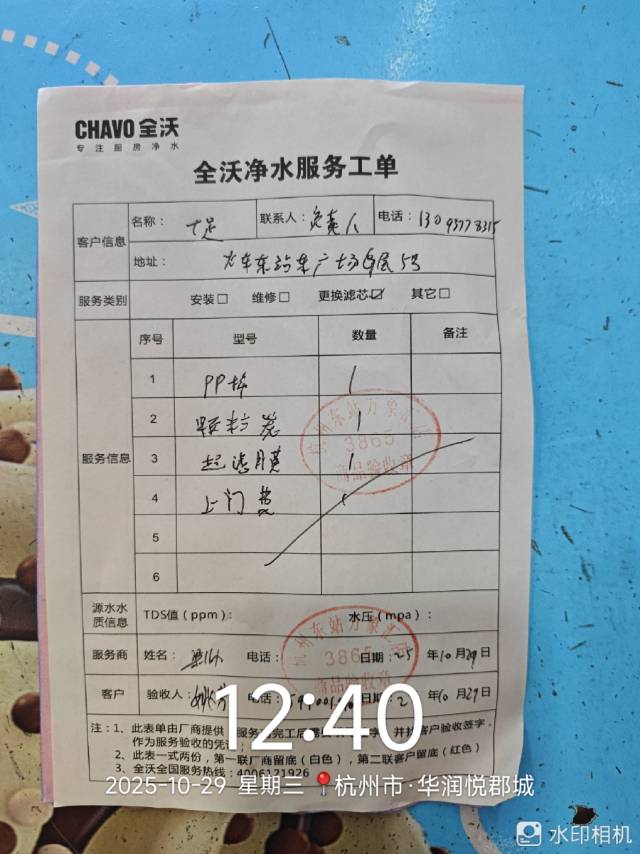 CHAVO 全沃
专注厨房净水
全沃净水服务工单
客户信息
名称: 七足 联系人: 负责人 电话:
地址: 火车东站东广场负层5号
服务类别 安装□ 维修□ 更换滤芯☑ 其它□
服务信息
序号 型号 数量 备注
1 PP棉 1
2 颗粒炭 1
3 超滤膜 1
4 上门费
5
6
源水水质信息 TDS值(ppm): 水压(mpa):
服务商 姓名: 电话: 日期: 25 年 10 月 29 日
客户 验收人: 电话: 日期: 年 10 月 29 日
杭州东站万象
3865
商品验收章
杭州东站万象
3865
商品验收章
注:1、此表单由厂商提供
作为服务验收的凭证;
2、此表一式两份,第一联厂商留底(白色),第二联客户留底(红色)
3、全沃全国服务热线:4006121926
12:40
2025-10-29 星期三 杭州市·华润悦郡城
水印相机